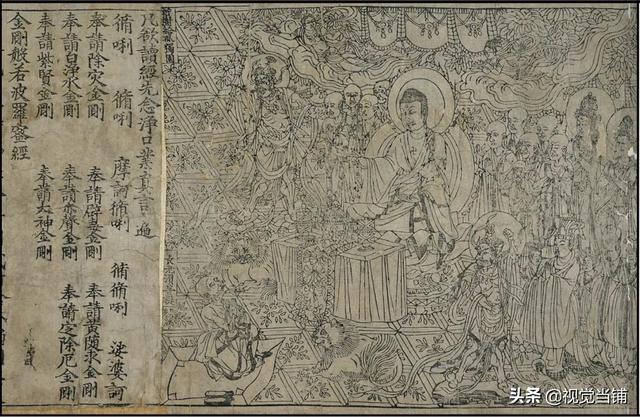 祇樹給孤獨園
凡欲讀經先念淨口業真言一遍
脩唎 脩唎 摩訶脩唎 脩脩唎 娑婆訶
奉請除灾金剛 奉請辟毒金剛 奉請黃隨求金剛
奉請白淨水金剛 奉請赤聲金剛 奉請定除厄金剛
奉請紫賢金剛 奉請大神金剛
金剛般若波羅蜜經
头条 @视觉当铺